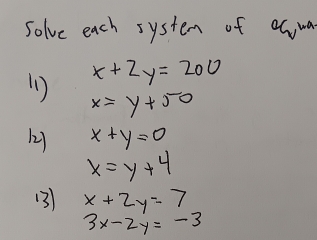 Solve each system of
11) x+2y=200
x=y+50
12) x+y=0
x=y+4
13) x+2y=7
3x-2y=-3